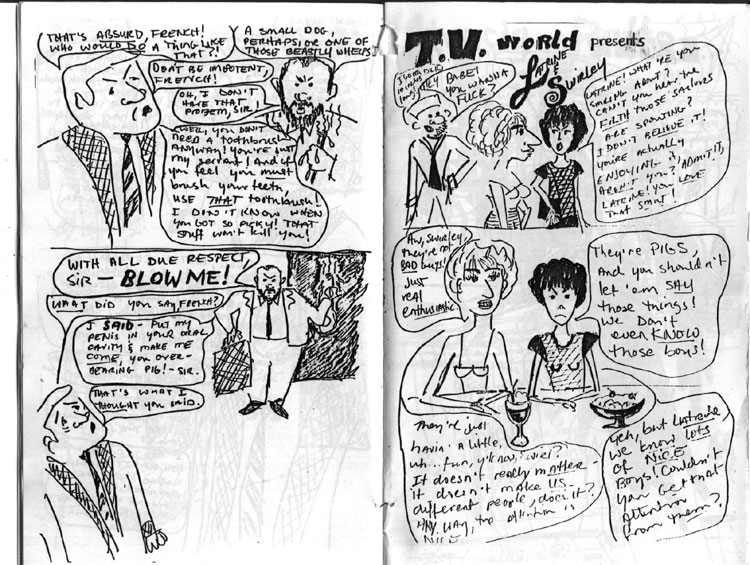 THAT'S ABSURD, FRENCH!
WHO WOULD DO A THING LIKE
THAT?!
A SMALL DOG,
PERHAPS, OR ONE OF
THOSE BEASTLY WHELPS
DON'T BE IMPOTENT,
FRENCH!
OH, I DON'T
HAVE THAT
PROBLEM, SIR!
WELL, YOU DON'T
NEED A TOOTHBRUSH
ANYWAY! YOU'RE JUST
MY SERVANT! AND IF
YOU FEEL YOU MUST
brush your teeth,
USE THAT toothbrush!
I DIDN'T KNOW WHEN
YOU GOT SO PICKY! THAT
STUFF won't kill you!
WITH ALL DUE RESPECT,
SIR — BLOW ME!
WHAT DID YOU SAY, FRENCH?
I SAID - PUT MY
PENIS IN YOUR ORAL
CAVITY & MAKE ME
COME, YOU OVER-
BEARING PIG! - SIR.
THAT'S WHAT I
THOUGHT YOU SAID.
T.V. WORLD presents
LATRINE
&
SWIRLEY
HEY BABE!
YOU WANNA
FUCK?
LATRINE! WHAT ARE YOU
SMILING ABOUT?
CAN'T YOU HEAR THE
FILTH THOSE SAILORS
ARE SPAWING?
I DON'T BELIEVE IT!
YOU'RE ACTUALLY
ENJOYING IT,
AREN'T YOU? ADMIT IT,
LATRINE! YOU LOVE
THAT SMUT!
Aw, Swirley,
they're not
BAD boys!
Just
real
enthusiastic.
They're PIGS,
And you shouldn't
let 'em SAY
those things!
We Don't
even KNOW
those boys!
They're just
havin' a little,
uh... fun, y'know, Swirl?
It doesn't really matter -
it doesn't make US
different people, does it?
Any way, the attention is
NICE
Yeh, but
we know LOTS
OF NICE
Boys! Couldn't
you Get that
Attention
From them?